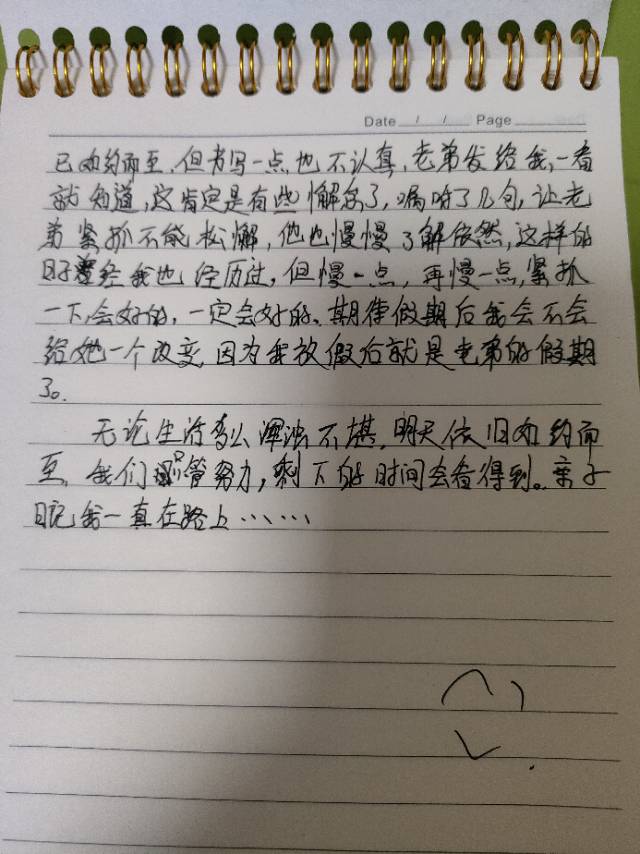 Date / / Page
已如约而至,但书写一点也不认真,老弟发给我,一看
就知道,这肯定是有些懈怠了,嘱咐了几句,让老
弟紧抓不能松懈,他也慢慢了解依然,这样的
日子曾经我也经历过,但慢一点,再慢一点,紧抓
一下,会好的,一定会好的。期待假期后我会不会
给她一个改变,因为我放假后就是老弟的假期
了。
无论生活多么浑浊不堪,明天依旧如约而
至,我们只管努力,剩下的时间会看得到。亲子
日记我一直在路上……